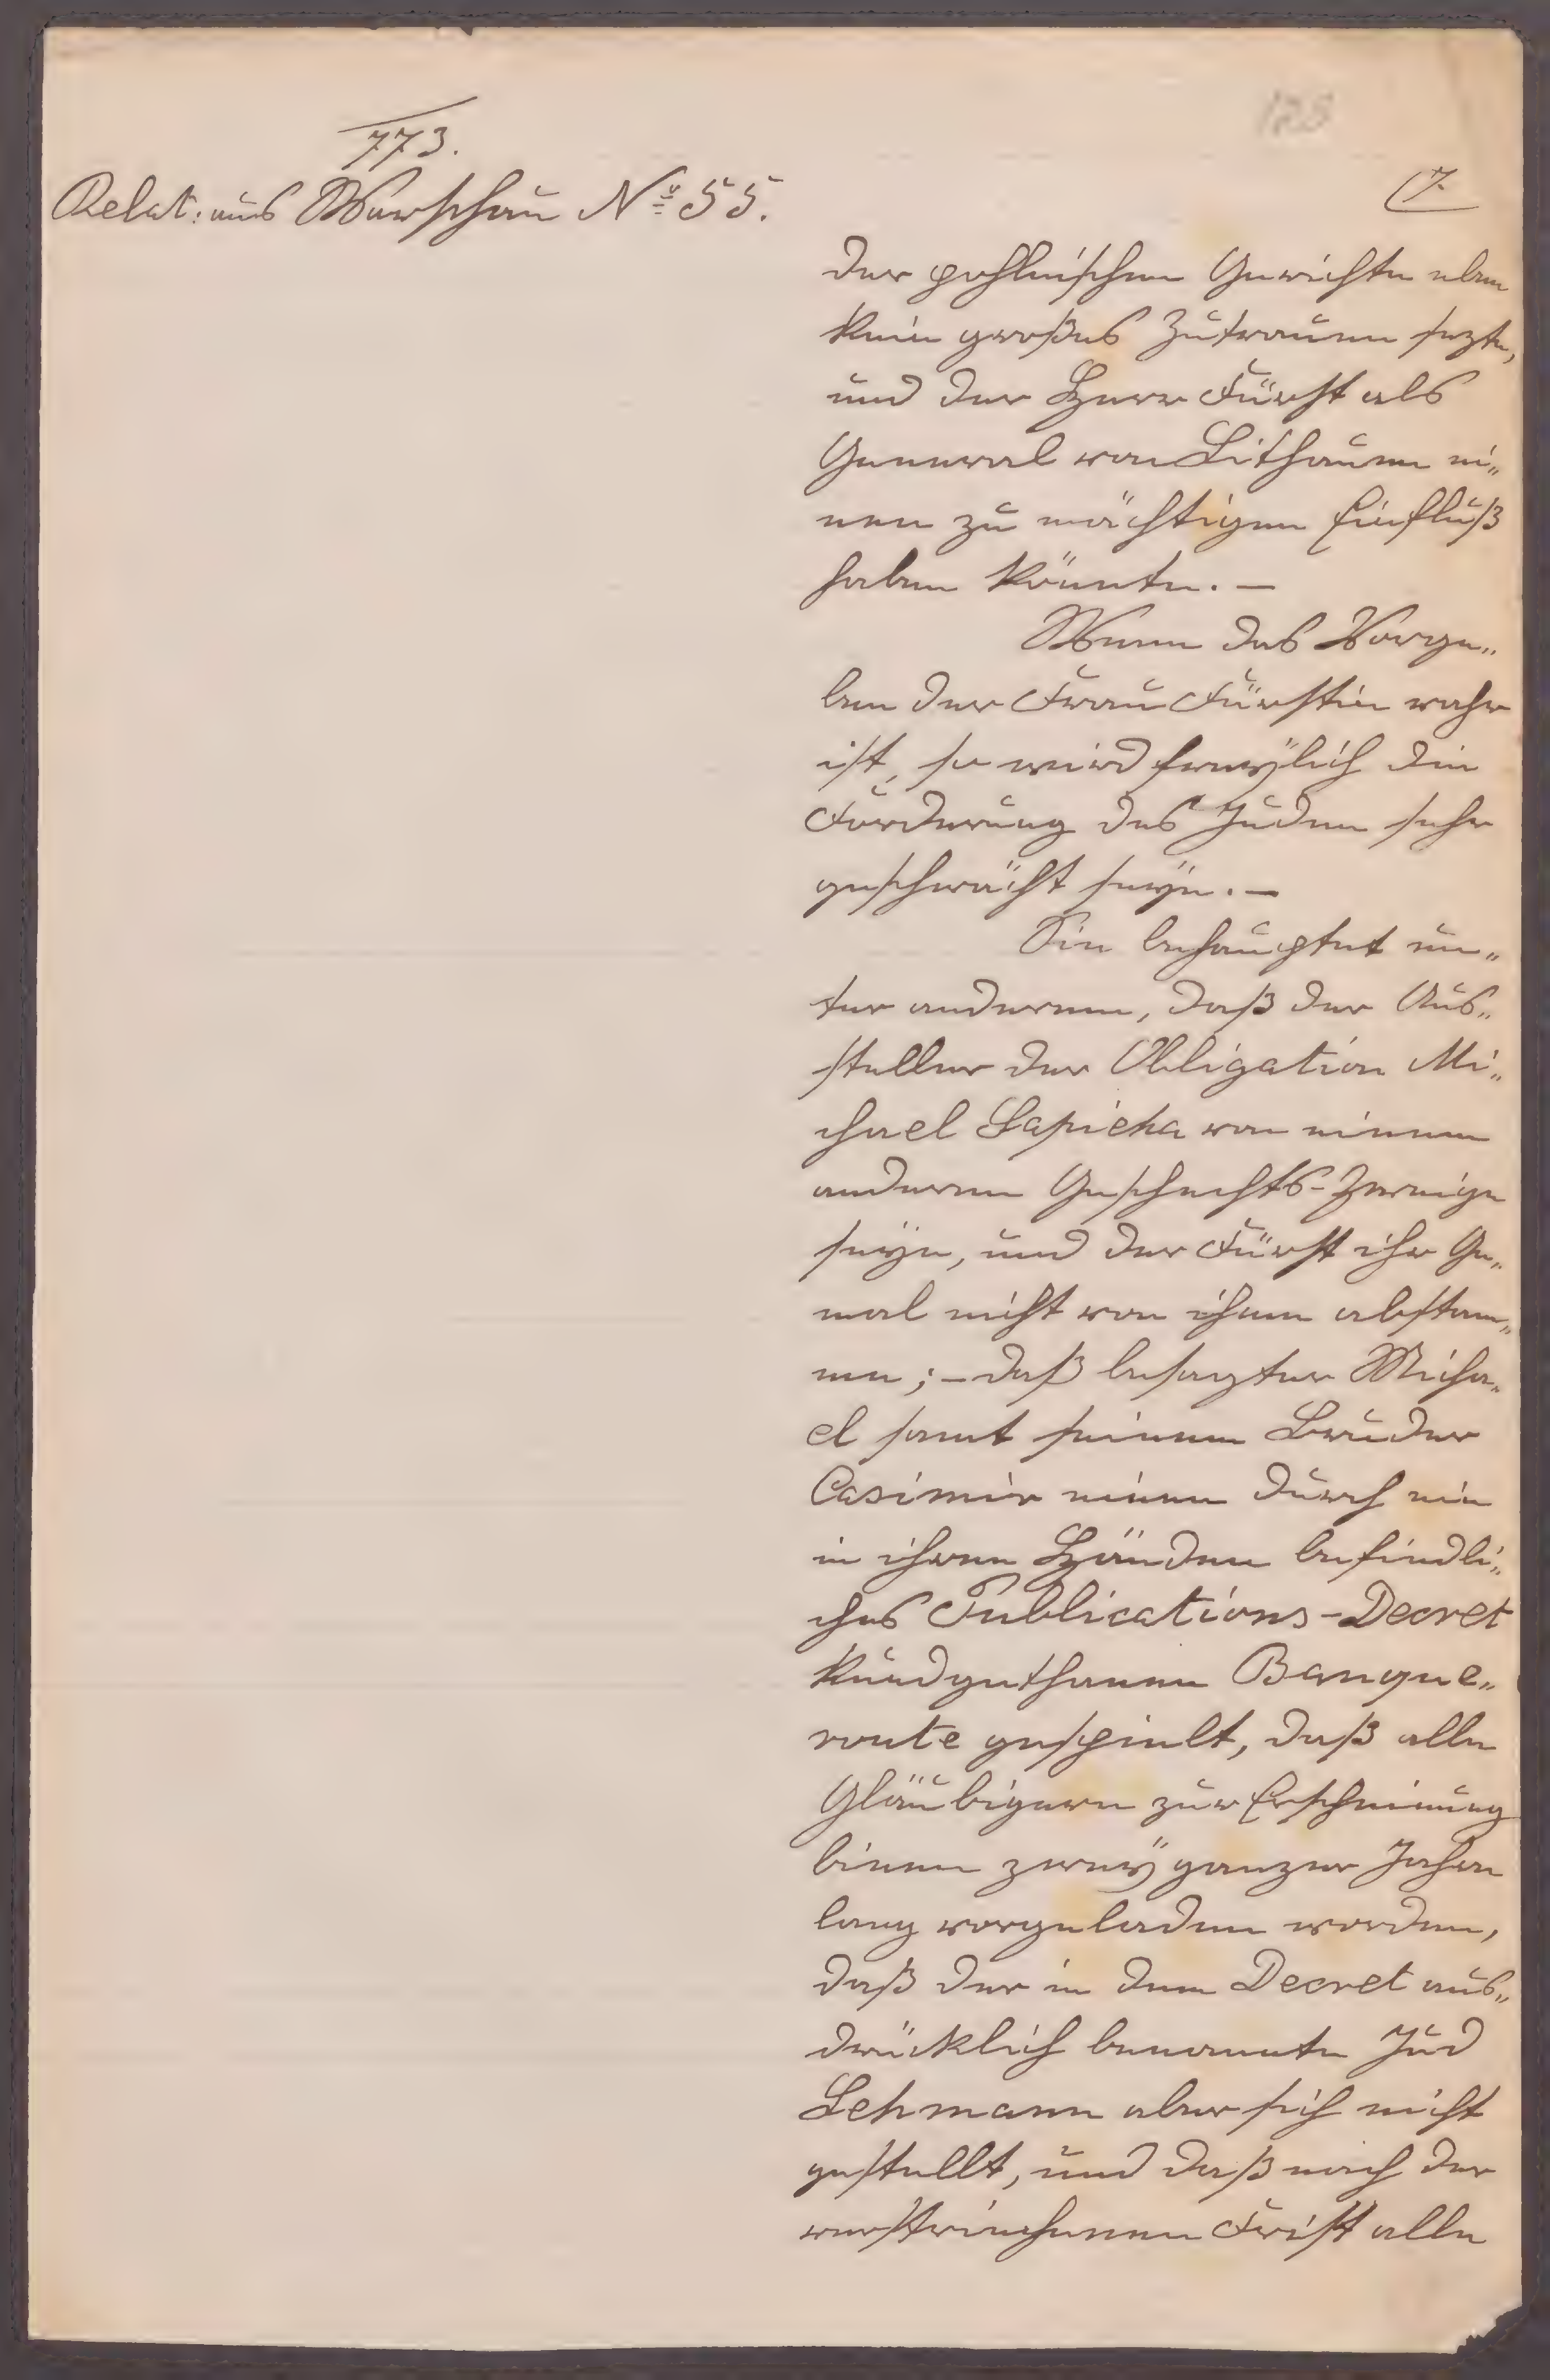 773.
Relat: aus Warschau No 55.
123
7.
der pohlnischen Gerichte eben
kein großes Zutrauen sezte,
und der Herr Fürst als
General von Lithauen ei„
nen zu mächtigen Einfluß
haben könnte. —
Wenn das Vorge„
ben der Frau Fürstin wahr
ist, so wird freÿlich die
Forderung des Juden sehr
geschwächt seÿn. —
Sie behauptet un„
ter anderem, daß der Aus„
steller der Obligation Mi„
chael Sapieha von einem
anderen Geschechts-Zweige
seÿe, und der Fürst ihr Ge„
mal nicht von ihm abstam„
me; – daß besagter Micha„
el samt seinem Bruder
Casimir einen durch ein
in ihren Händen befindli„
ches Publications-Decret
kundgethanen Banque„
route gespielt, daß alle
Gläubigern zur Erscheinung
binen zweÿ ganzer Jahre
lang vorgeladen worden,
daß der in dem Decret aus„
drücklich benannte Jud
Lehmann aber sich nicht
gestellt, und daß nach der
verstrichenen Frist alle